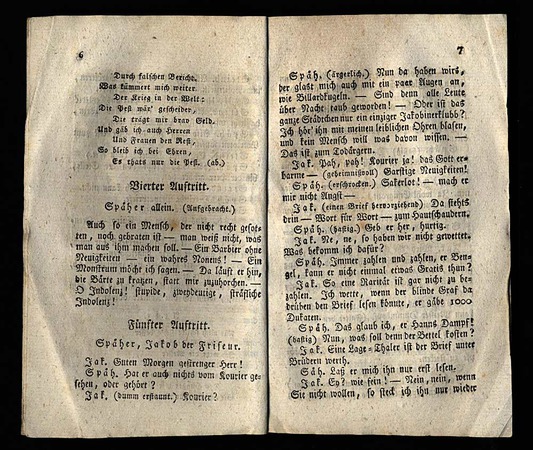 6
Durch falschen Bericht.
Was kümmert mich weiter.
Der Krieg in der Welt:
Die Pest wär' gescheider,
Die trägt mir brav Geld.
Und gäb ich auch Herren
Und Frauen den Rest,
So bleib ich bei Ehren,
Es thats nur die Pest. (ab.)
Vierter Auftritt.
Späher allein. (Aufgebracht.)
Auch so ein Mensch, der nicht recht gesot-
ten, noch gebraten ist — man weiß nicht, was
man aus ihm machen soll. — Ein Barbier ohne
Neuigkeiten — ein wahres Nonens! — Ein
Monstrum möcht ich sagen. — Da läuft er hin,
die Bärte zu kratzen, statt mir zuzuhorchen. —
O Indolenz! stupide, zweydeutige, sträfliche
Indolenz!
Fünfter Auftritt.
Späher, Jakob der Friseur.
Jak. Guten Morgen gestrenger Herr!
Späh. Hat er auch nichts vom Kourier ge-
sehen, oder gehört?
Jak. (dumm erstaunt.) Kourier?
7
Späh. (ärgerlich.) Nun da haben wirs,
der glast mich auch mit ein paar Augen an,
wie Billardkugeln. — Sind denn alle Leute
über Nacht taub geworden! — Oder ist das
ganze Städtchen nur ein einziger Jakobinerklubb?
Ich hör' ihn mit meinen leiblichen Ohren blasen,
und kein Mensch will was davon wissen. —
Das ist zum Todärgern.
Jak. Pah, pah! Kourier ja! das Gott er-
barme — (geheimnißvoll) Garstige Neuigkeiten!
Späh. (erschrocken.) Sakerlot! — mach er
mir nicht Angst —
Jak. (einen Brief hervorziehend) Da stehts
drein — Wort für Wort — zum Hautschaudern.
Späh. (hastig.) Geb er her, hurtig.
Jak. Ne, ne, so haben wir nicht gewettet.
Was bekomm ich dafür?
Späh. Immer zahlen und zahlen, er Ben-
gel, kann er nicht einmal etwas Gratis thun?
Jak. So eine Rarität ist gar nicht zu be-
zahlen. Ich wette, wenn der blinde Graf da
drüben den Brief lesen könnte, er gäbe 1000
Dukaten.
Späh. Das glaub ich, er Hanns Dampf!
(hastig) Nun, was soll denn der Bettel kosten?
Jak. Eine Lage-Thaler ist der Brief unter
Brüdern werth.
Säh. Laß er mich ihn nur erst lesen.
Jak. Ey? wie fein! — Nein, nein, wenn
Sie nicht wollen, so steck ich ihn nur wieder